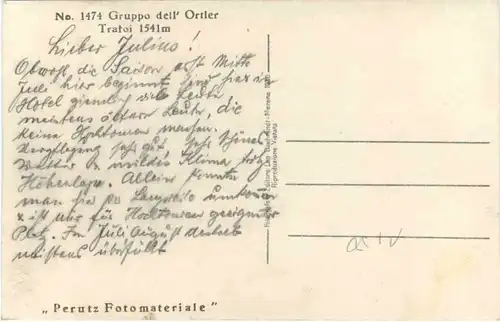 No. 1474 Gruppo dell' Ortler
Trafoi 1541m
Lieber Julius!
Obwohl die Saison erst Mitte
Juli hier beginnt sind hier im
Hotel ziemlich viele Leute
meistens ältere Leute, die
keine Hochtouren machen.
Verpflegung sehr gut, sehr schönes
Wetter & mildes Klima trotz
Höhenlage. Allein könnte
man hier vor Langweile umkommen
& ist nur für Hochtouren geeigneter
Platz. Im Juli August deshalb
meistens überfüllt
Riproduzione Vietata
„Perutz Fotomateriale"